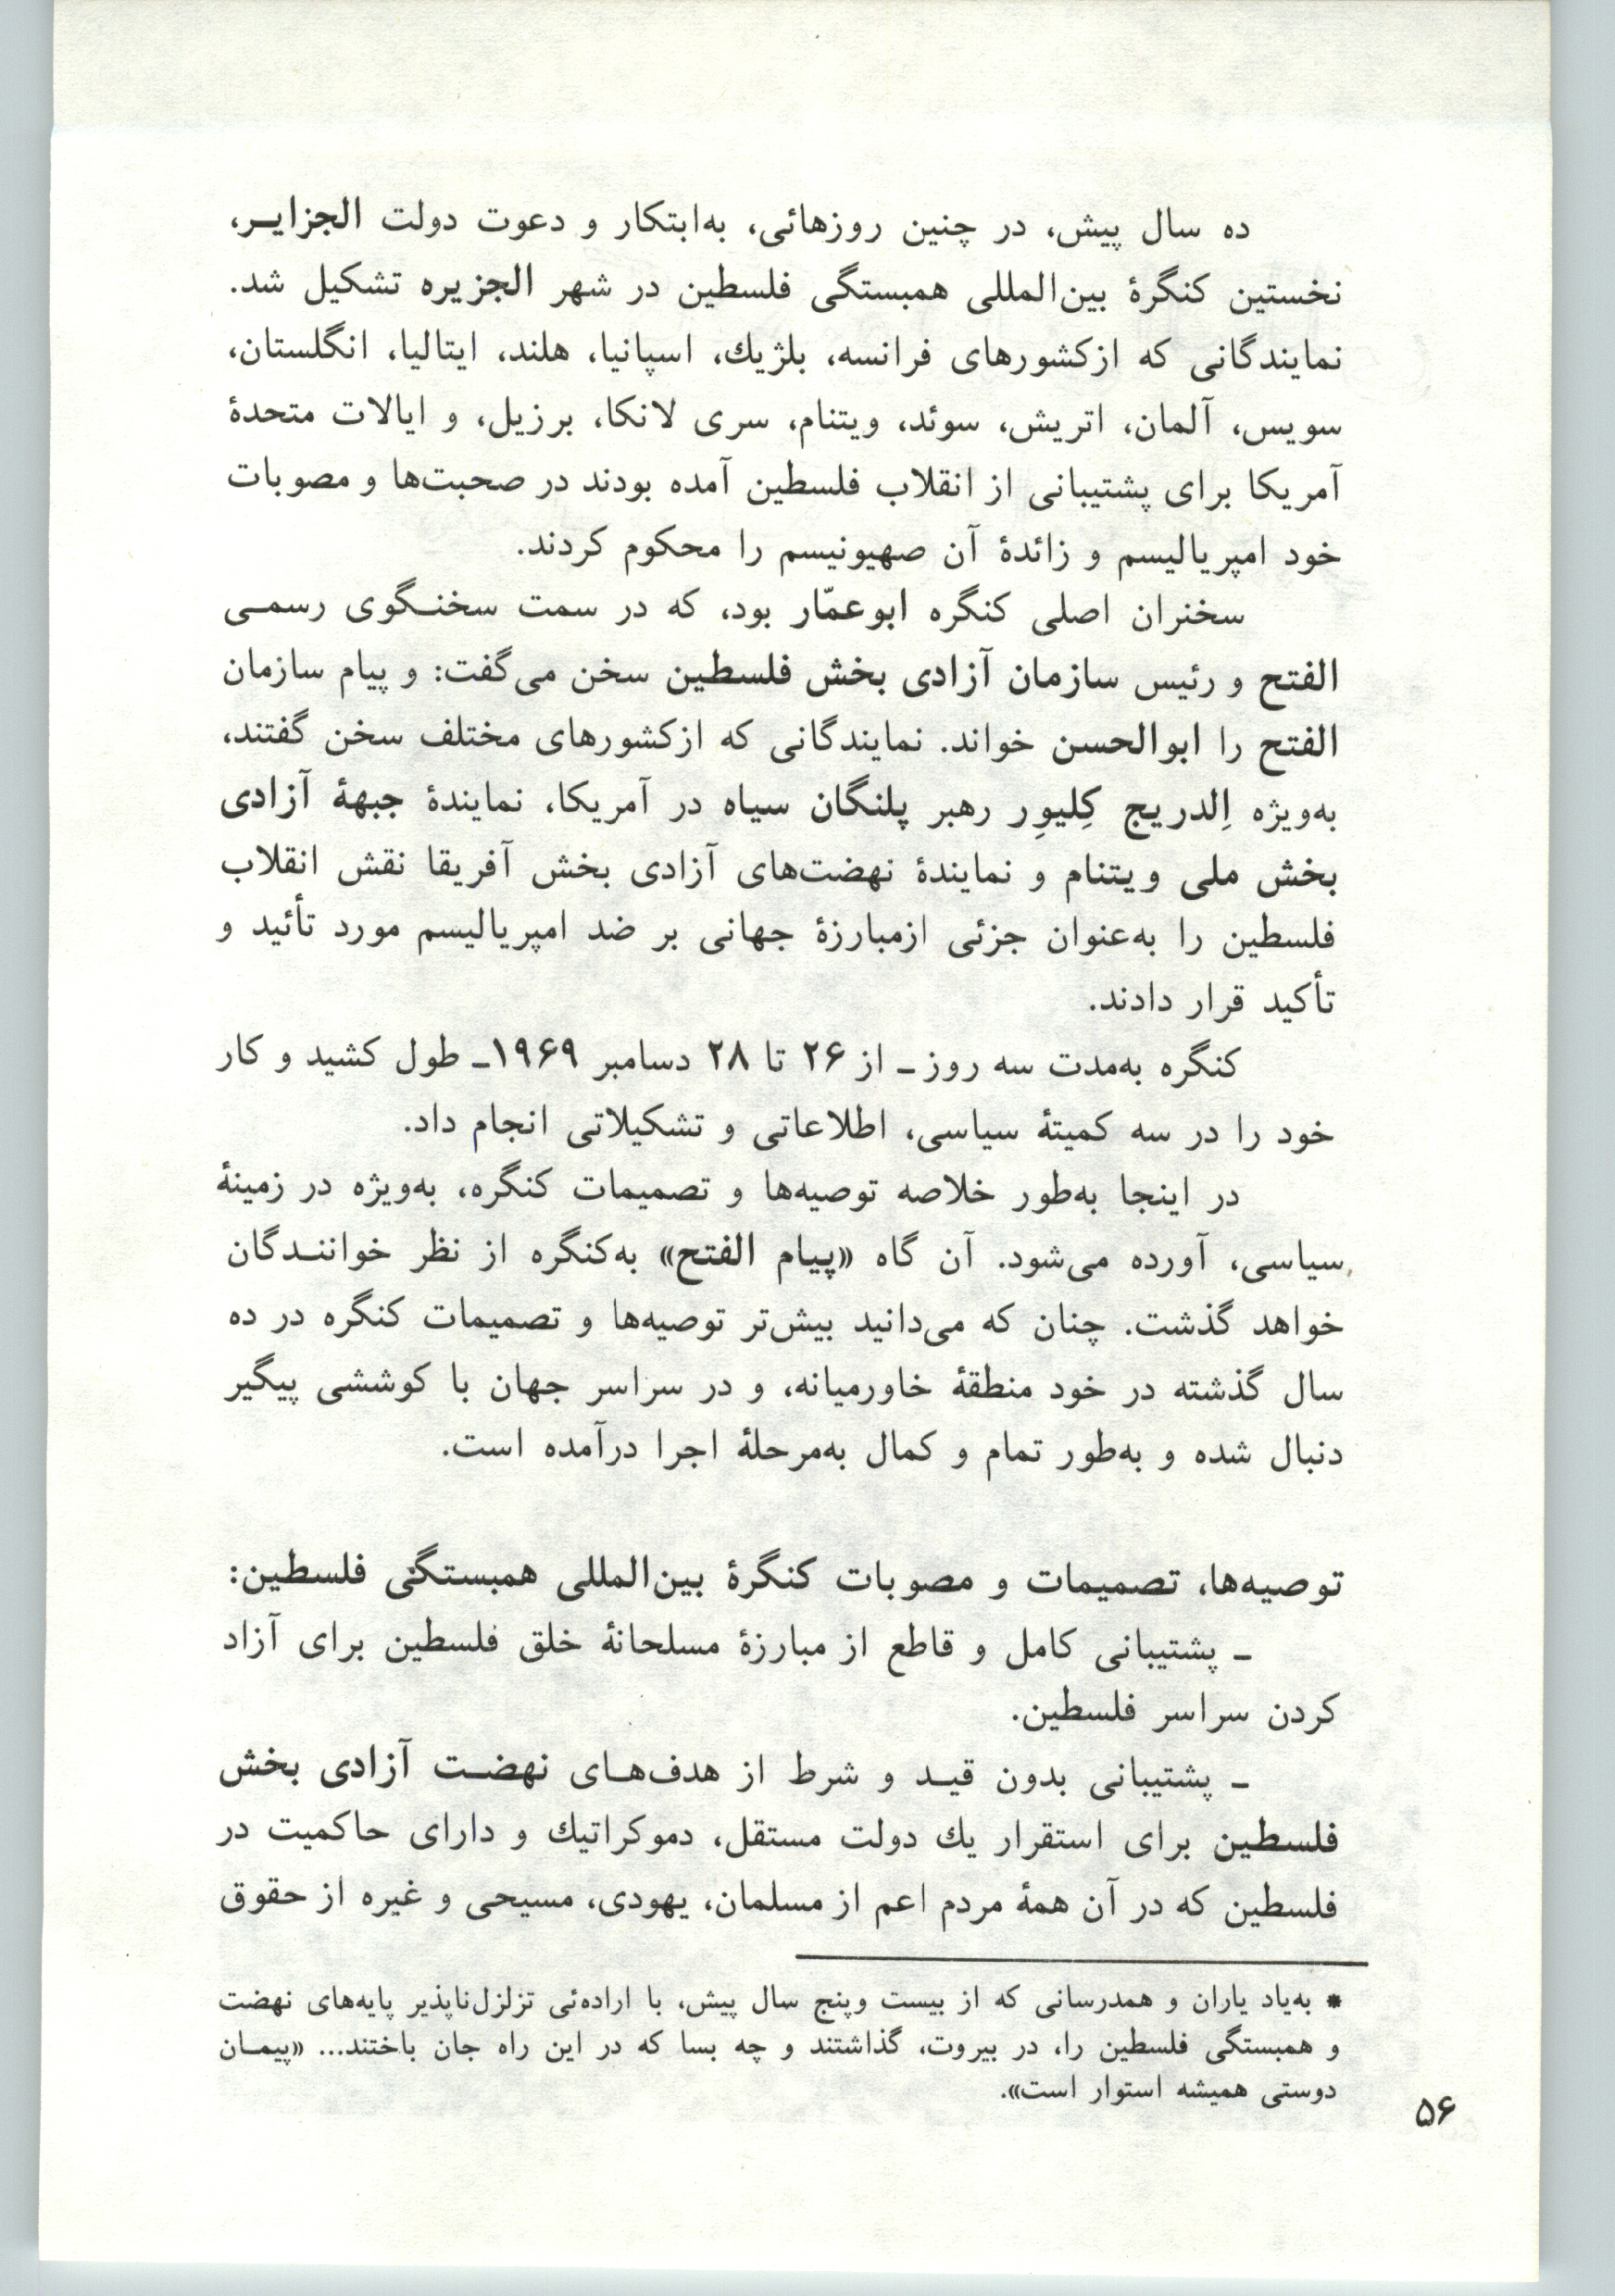 ده سال پیش، در چنین روزهائی، به‌ابتکار و دعوت دولت الجزایـر،
نخستین کنگرۀ بین‌المللی همبستگی فلسطین در شهر الجزیره تشکیل شد.
نمایندگانی که ازکشورهای فرانسه، بلژیك، اسپانیا، هلند، ایتالیا، انگلستان،
سویس، آلمان، اتریش، سوئد، ویتنام، سری لانکا، برزیل، و ایالات متحدۀ
آمریکا برای پشتیبانی از انقلاب فلسطین آمده بودند در صحبت‌ها و مصوبات
خود امپریالیسم و زائدۀ آن صهیونیسم را محکوم کردند.
سخنران اصلی کنگره ابوعمّار بود، که در سمت سخنـگوی رسمـی
الفتح و رئیس سازمان آزادی بخش فلسطین سخن می‌گفت: و پیام سازمان
الفتح را ابوالحسن خواند. نمایندگانی که ازکشورهای مختلف سخن گفتند،
به‌ویژه اِلدریج کِلیوِر رهبر پلنگان سیاه در آمریکا، نمایندۀ جبهۀ آزادی
بخش ملی ویتنام و نمایندۀ نهضت‌های آزادی بخش آفریقا نقش انقلاب
فلسطین را به‌عنوان جزئی ازمبارزۀ جهانی بر ضد امپریالیسم مورد تأئید و
تأکید قرار دادند.
کنگره به‌مدت سه روز ـ از ۲۶ تا ۲۸ دسامبر ۱۹۶۹ـ طول کشید و کار
خود را در سه کمیتۀ سیاسی، اطلاعاتی و تشکیلاتی انجام داد.
در اینجا به‌طور خلاصه توصیه‌ها و تصمیمات کنگره، به‌ویژه در زمینۀ
سیاسی، آورده می‌شود. آن گاه «پیام الفتح» به‌کنگره از نظر خواننـدگان
خواهد گذشت. چنان که می‌دانید بیش‌تر توصیه‌ها و تصمیمات کنگره در ده
سال گذشته در خود منطقۀ خاورمیانه، و در سراسر جهان با کوششی پیگیر
دنبال شده و به‌طور تمام و کمال به‌مرحلۀ اجرا درآمده است.
توصیه‌ها، تصمیمات و مصوبات کنگرۀ بین‌المللی همبستگی فلسطین:
ـ پشتیبانی کامل و قاطع از مبارزۀ مسلحانۀ خلق فلسطین برای آزاد
کردن سراسر فلسطین.
ـ پشتیبانی بدون قیـد و شرط از هدف‌هـای نهضـت آزادی بخش
فلسطین برای استقرار یك دولت مستقل، دموکراتیك و دارای حاکمیت در
فلسطین که در آن همۀ مردم اعم از مسلمان، یهودی، مسیحی و غیره از حقوق
* به‌یاد یاران و همدرسانی که از بیست وپنج سال پیش، با اراده‌ئی تزلزل‌ناپذیر پایه‌های نهضت
و همبستگی فلسطین را، در بیروت، گذاشتند و چه بسا که در این راه جان باختند... «پیمـان
دوستی همیشه استوار است».
۵۶